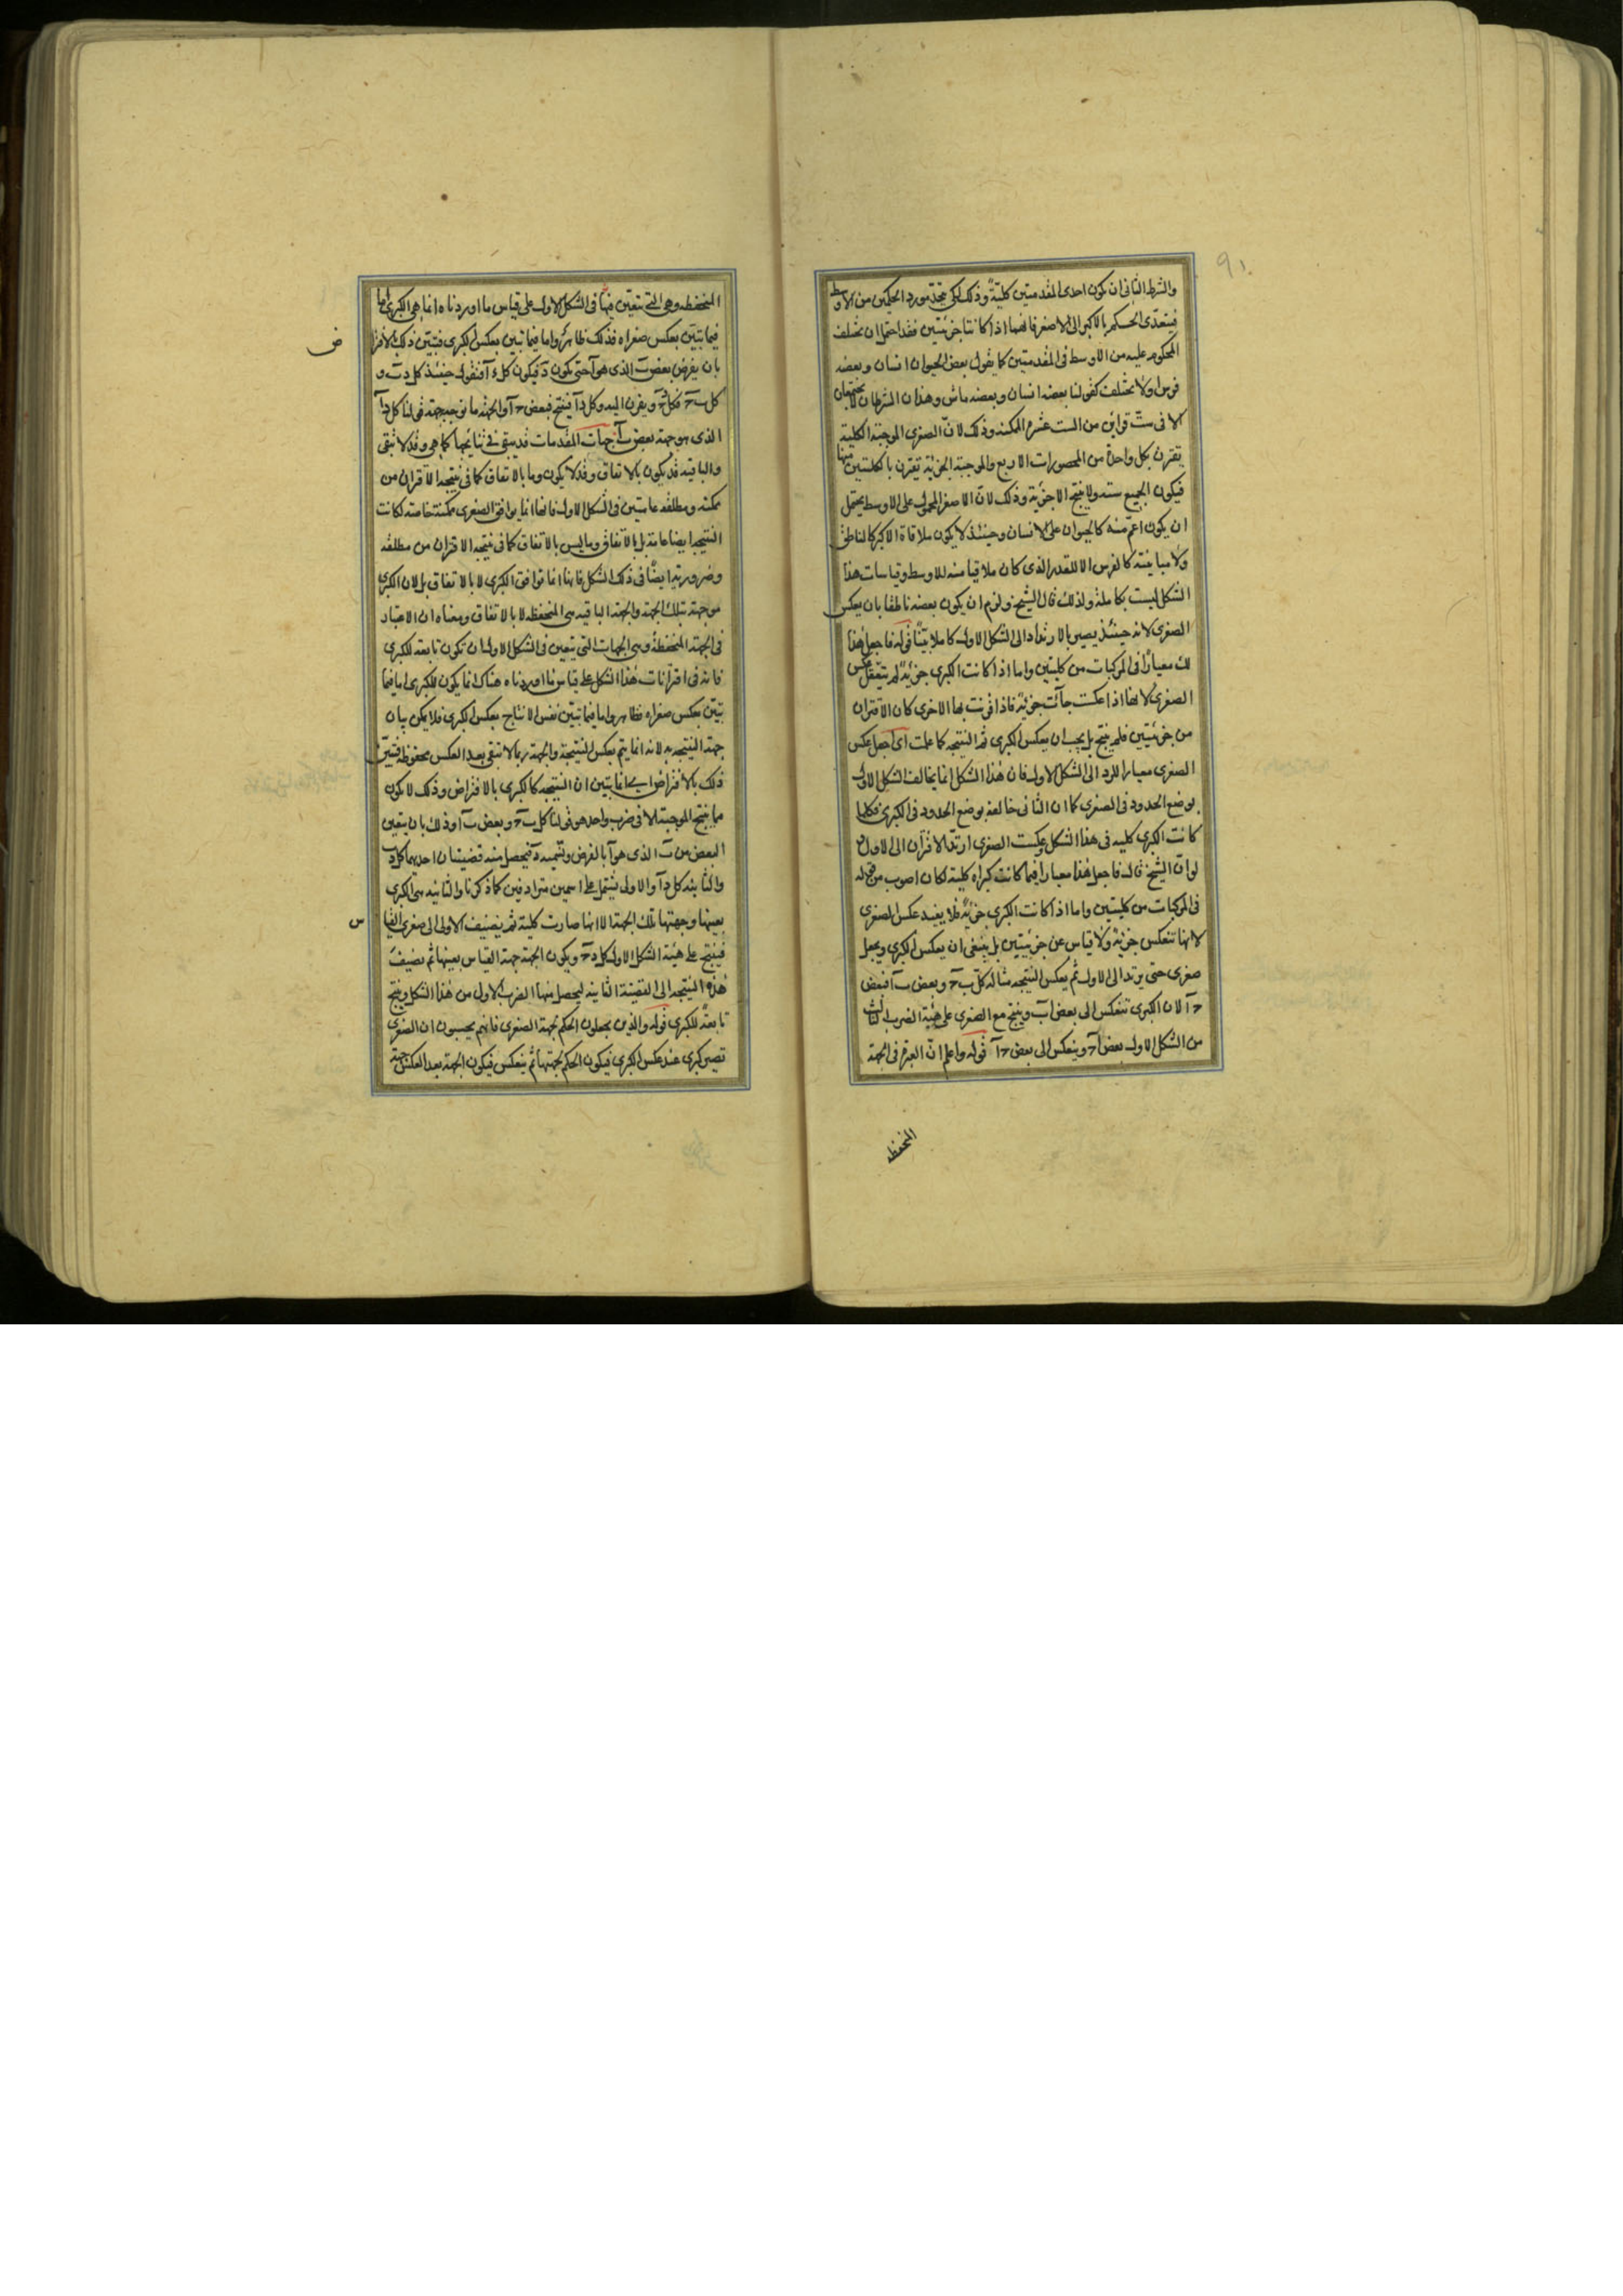 ٩١
والشرط الثانى ان يكون احدى المقدمتين كليةً وذلك لكى يتحد مورد الحكمين من الاوسط
فيتعدّى الحكم بالاكبر الى الاصغر فانهما اذا كانتا جزئيتين فقد احتمل ان يختلف
المحكوم عليه من الاوسط فى المقدمتين كما يقول بعض الحيوان انسان وبعضه
فرس اولا يختلف كقولنا بعضه انسان وبعضه ماش وهذان الشرطان لا يجتمعان
الا فى ستّ قراين من الست عشرة الممكنة وذلك لانّ الصغرى الموجبة الكلية
يقترن بكل واحدة من المحصورات الاربع والموجبة الجزئية تقترن بالكليتين منها
فيكون الجميع ستة ولا ينتج الا جزئية وذلك لانّ الاصغر المحمول على الاوسط يحتمل
ان يكون اعمّ منه كالحيوان على الانسان وحينئذ لا يكون ملاقاة الاكبر كالناطق
ولا مباينته كالفرس الا للقدر الذى كان ملاقيا منه للاوسط وقياسات هذا
الشكل ليست بكاملة ولذلك قال الشيخ ولزم ان يكون بعضه ناطقا بان يعكس
الصغرى لانه حينئذ يصير بالارتداد الى الشكل الاول كاملا بيّنًا قوله فاجعل هذا
لك معيارًا فى المركبات من كليتين واما اذا كانت الكبرى جزئيةً لم ينفعك عكس
الصغرى لانها اذا عكست جآئت جزئية فاذا قرنت بها الاخرى كان الاقتران
من جزئيتين فلم ينتج بل يجب ان يعكس الكبرى ثم النتيجة كما علمت اى اجعل عكس
الصغرى معيارا للرد الى الشكل الاول فان هذا الشكل انما يخالف الشكل الاول
بوضع الحدود فى الصغرى كما ان الثانى خالفه بوضع الحدود فى الكبرى فكلما
كانت الكبرى كليه فى هذا الشكل وعكست الصغرى ارتد الاقتران الى الاول و
لو انّ الشيخ قال فاجعل هذا معيارا فيما كانت كبراه كلية لكان اصوب من قوله
فى المركبات من كليتين واما اذا كانت الكبرى جزئيةً فلا يفيد عكس الصغرى
لانها تنعكس جزئيةً ولا قياس عن جزئيتين بل ينبغى ان يعكس الكبرى ويجعل
صغرى حتى يرتد الى الاول ثم يعكس النتيجه مثاله كل ب ج وبعض ب آ فبعض
ج آ لان الكبرى تنعكس الى بعض آب وينتج مع الصغرى على هيئة الضرب الثالث
من الشكل الاول بعض آج وينعكس الى بعض ج آ قوله واعلم انّ العبرة فى الجهة
المنحفظه
المنحفظه وهى التى يتعيّن فيها فى الشكل الاول على قياس ما اوردناه انما هى الكبرى اما
فيما يتبيّن بعكس صغراه فذلك ظاهر واما فيما تبين بعكس الكبرى فتبيّن ذلك بالافترا
ض
بان يفرض بعض ب الذى هو آ حتى يكون د فيكون كل د آ فنقول حينئذ كل د ب و
كل ب ج فكل د ج ويقرن اليه وكل د آ فينتج فبعض ج آ والجهة ما توجبه جهة قولنا كل د آ
الذى هو جهة بعض ب آ جهات المقدمات قد يبقى فى نتايجها كما هى وقد لا تبقى
والباقية قد يكون بالاتفاق وقد لا يكون وما بالاتفاق كما فى نتيجة الاقتران من
ممكنة ومطلقه عامتين فى الشكل الاول فانها انما يوافق الصغرى ممكنة خاصة لكانت
النتيجه ايضا عامة بل بالاتفاق وما ليس بالاتفاق كما فى نتيجه الاقتران من مطلقه
وضرورية ايضًا فى ذلك الشكل فانها انما توافق الكبرى لا بالاتفاق بل لان الكبرى
موجهة بتلك الجهة والجهة الباقيه هى المنحفظة لا بالاتفاق ومعناه ان الاعتبار
فى الجهة المنحفظة وهى الجهات التى يتعين فى الشكل الاول ان تكون تابعة للكبرى
فانه فى اقترانات هذا الشكل على قياس ما اوردناه هناك انما يكون للكبرى اما فيما
تبيّن بعكس صغراه فظاهر واما فيما تبيّن نفس الانتاج بعكس الكبرى فلا يمكن بيان
جهة النتيجه به لانه انما يتم بعكس النتيجة والجهة ربما لا تبقى بعد العكس محفوظة فتبيّن
ذلك بالافتراض انما يتبين ان النتيجه كالكبرى بالافتراض وذلك لا يكون
مما ينتج الموجبة الا فى ضرب واحد هو قولنا كل ب ج وبعض ب آ وذلك بان يتعين
البعض من ب الذى هو آ بالفرض ونسميه د فيحصل منه قضيتان احديهما كل د ب
والثانية كل د آ والاولى تشتمل على اسمين مترادفين كما ذكرنا والثانية هى الكبرى
بعينها وجهتها تلك الجهة الا انها صارت كلية ثم يضيف الاولى الى صغرى القيا
س
فينتج على هيئة الشكل الاول كل د ج ويكون الجهة جهة القياس بعينها ثم نضيف
هذه النتيجه الى القضية الثانيه ليحصل منها الضرب الاول من هذا الشكل وينتج
تابعةً للكبرى قوله والذين يجعلون الحكم لجهة الصغرى فانهم يحسبون ان الصغرى
تصير كبرى عند عكس الكبرى فيكون الحكم لجهتها ثم ينعكس فيكون الجهة بعد العكس جهة